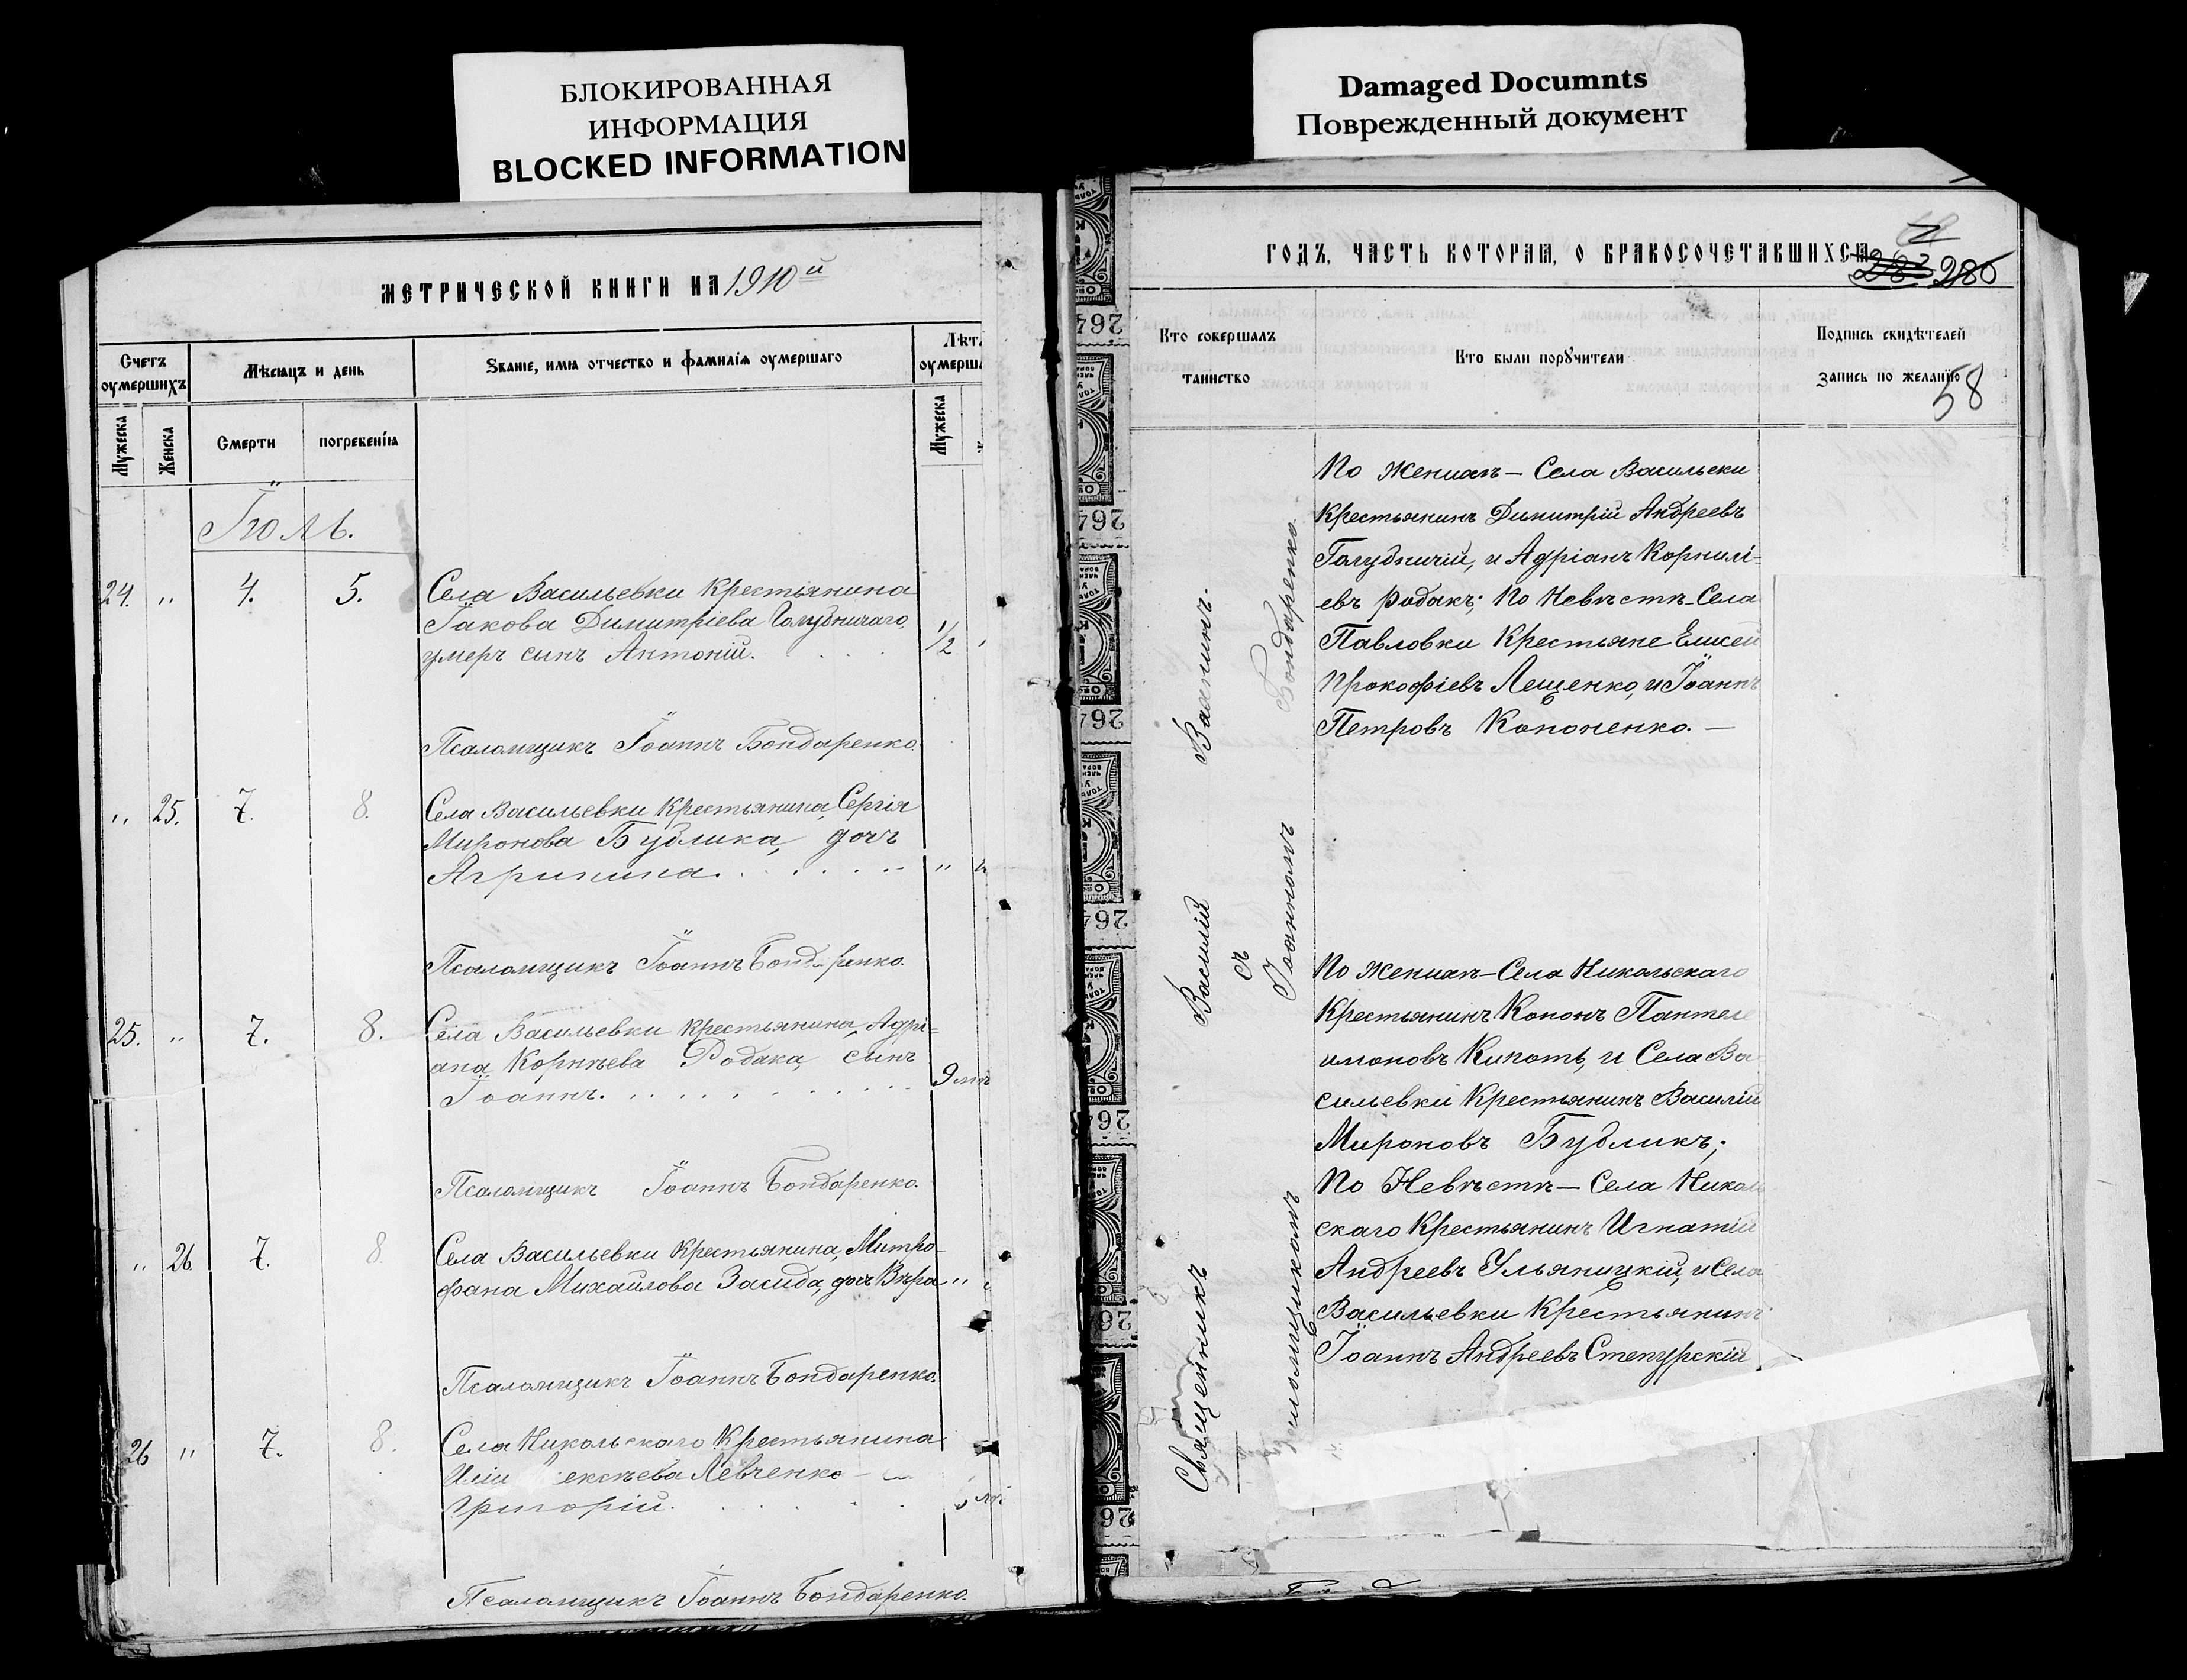 БЛОКИРОВАННАЯ
ИНФОРМАЦИЯ
BLOCKED INFORMATION
Damaged Documnts
Поврежденный документ
МЕТРИЧЕСКОЙ КНИГИ НА 1910й
Счетъ
оумершихъ
Мѣсяцъ и день
Званіе, имя отчество и фамилія оумершаго
Лѣт
оумерш
Мужеска
Женска
Смерти
погребенія
Мужеска
Іюль.
24. " 4. 5. Села Васильевки Крестьянина
Іакова Димитріева Голубничаго,
умеръ сынъ Антоній. 1/2
Псаломщикъ Іоаннъ Бондаренко.
" 25. 7. 8. Села Васильевки Крестьянина, Сергія
Миронова Бублика, дочь
Агрипина. "
Псаломщикъ Іоаннъ Бондаренко.
25. " 7. 8. Села Васильевки Крестьянина, Адрі-
ана Корнѣева Родака, сынъ
Іоаннъ. 9
Псаломщикъ Іоаннъ Бондаренко.
" 26. 7. 8 Села Васильевки Крестьянина, Митро-
фана Михайлова Засида, дочь Вѣра "
Псаломщикъ Іоаннъ Бондаренко.
26 " 7. 8. Села Никольскаго Крестьянина
Иліи ексѣева Левченко
Григорій.
Псаломщикъ Іоаннъ Бондаренко.
ГОДЪ, ЧАСТЬ КОТОРАЯ, О БРАКОСОЧЕТАВШИХСЯ
280
Кто совершалъ
таинство
Кто были порȣчители
Подпись свидѣтелей
Запись по желанію
58
Священникъ Василій Васенинъ.
съ
Псаломщикомъ Іоанномъ Бондаренко
По Женихѣ – Села Васильевки
Крестьянинъ Димитрій Андреевъ
Голубничій, и Адріанъ Корнилі-
евъ Родакъ; По Невѣстѣ – Села
Павловки Крестьяне Елисей
Прокофіевъ Лещенко, и Іоаннъ
Петровъ Кононенко. –
По Женихѣ – Села Никольскаго
Крестьянинъ Кононъ Пантеле
имоновъ Кипоть, и Села Ва
сильевки Крестьянинъ Василій
Мироновъ Бубликъ;
По Невѣстѣ – Села Николь
скаго Крестьянинъ Игнатій
Андреевъ Ульяницкій, и Села
Васильевки Крестьянинъ
Іоаннъ Андреевъ Степурскій